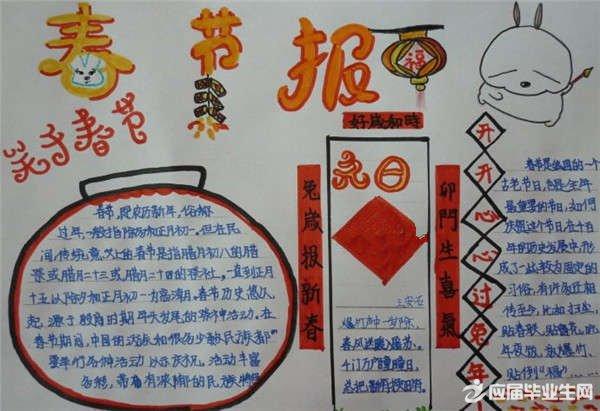 春节报
福
关于春节
春节，是农历新年，俗称
过年，一般指除夕和正月初一。但在民
间，传统意义上的春节是指腊月初八的腊
祭或腊月二十三或腊月二十四的祭灶。一直到正月
十五，以除夕和正月初一为高潮。春节历史悠久，
起源于殷商时期年头岁尾的祭神活动。在
春节期间，中国的汉族和很多少数民族都
要举行各种活动以示庆祝。活动丰富
多彩，带有浓郁的民族特
好歲如時
兔歲报新春
元日
王安石
爆竹声中一岁除，
春风送暖入屠苏。
千门万户曈曈日，
总把新桃换旧符。
卯門生喜氣
开开心心过兔年
春节是我国的一个
古老节日，也是全年
最重要的节日，如何
庆祝这个节日，在千
年的历史发展中，形
成了一些较为固定的
习俗，有许多还相
传至今，比如扫尘，
贴春联，贴窗花，吃
年夜饭，放爆竹，
贴倒“福”……
应届毕业生网